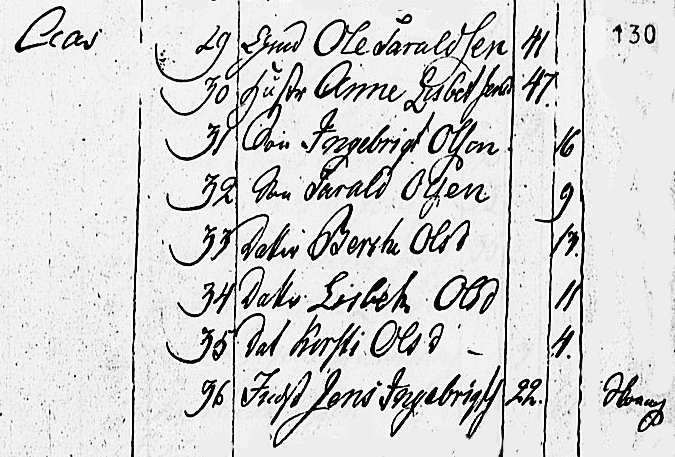 29 Ole Taraldsen 41 130
30 Hustr Anne Lisbet 47.
31 Søn Ingebrigt Olsen 16
32 Søn Tarald Olsen 9
33 Datter Berthe Olsd 13.
34 Datter Lisbeth Olsd 11
35 Dat Kirsti Olsd - 4.
36 Inds Jens Ingebrigts 22.